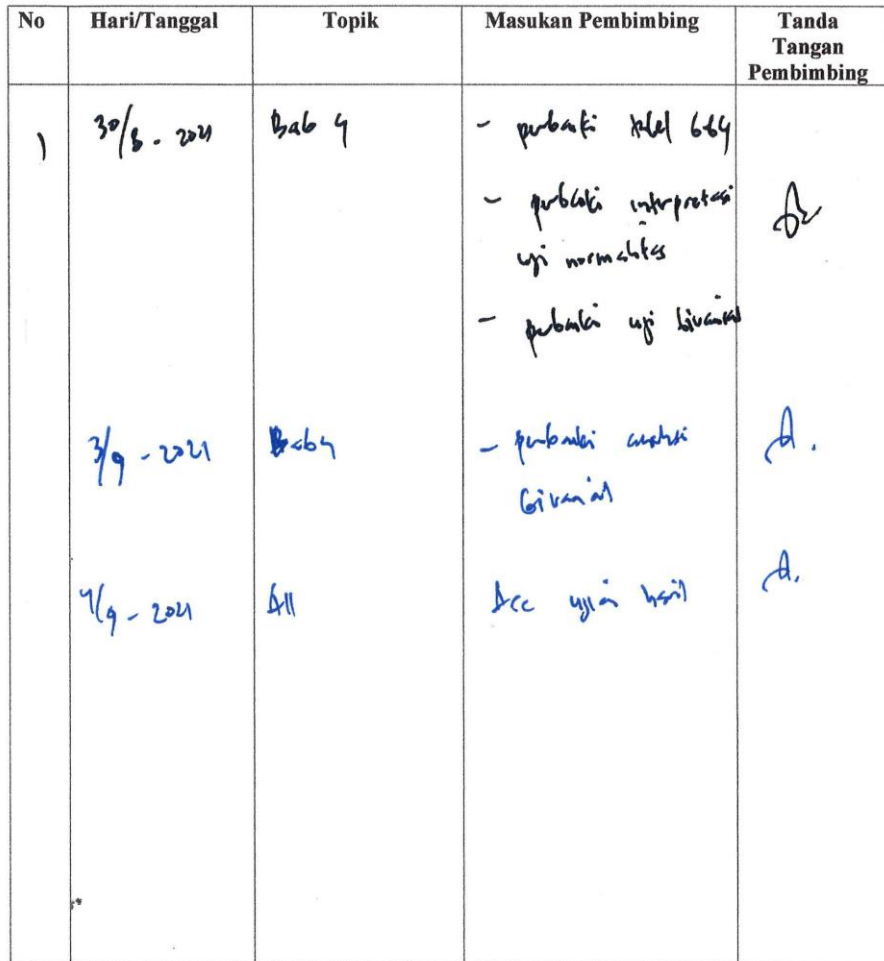 No Hari/Tanggal Topik Masukan Pembimbing Tanda
Tangan
Pembimbing
1 30/8 - 2021 Bab 4 - perbaiki tabel bab 4
- perbaiki interpretasi
uji normalitas
- perbaiki uji bivariat
3/9 - 2021 Bab 4 - perbaiki analisi
bivariat
4/9 - 2021 All Acc ujian hasil